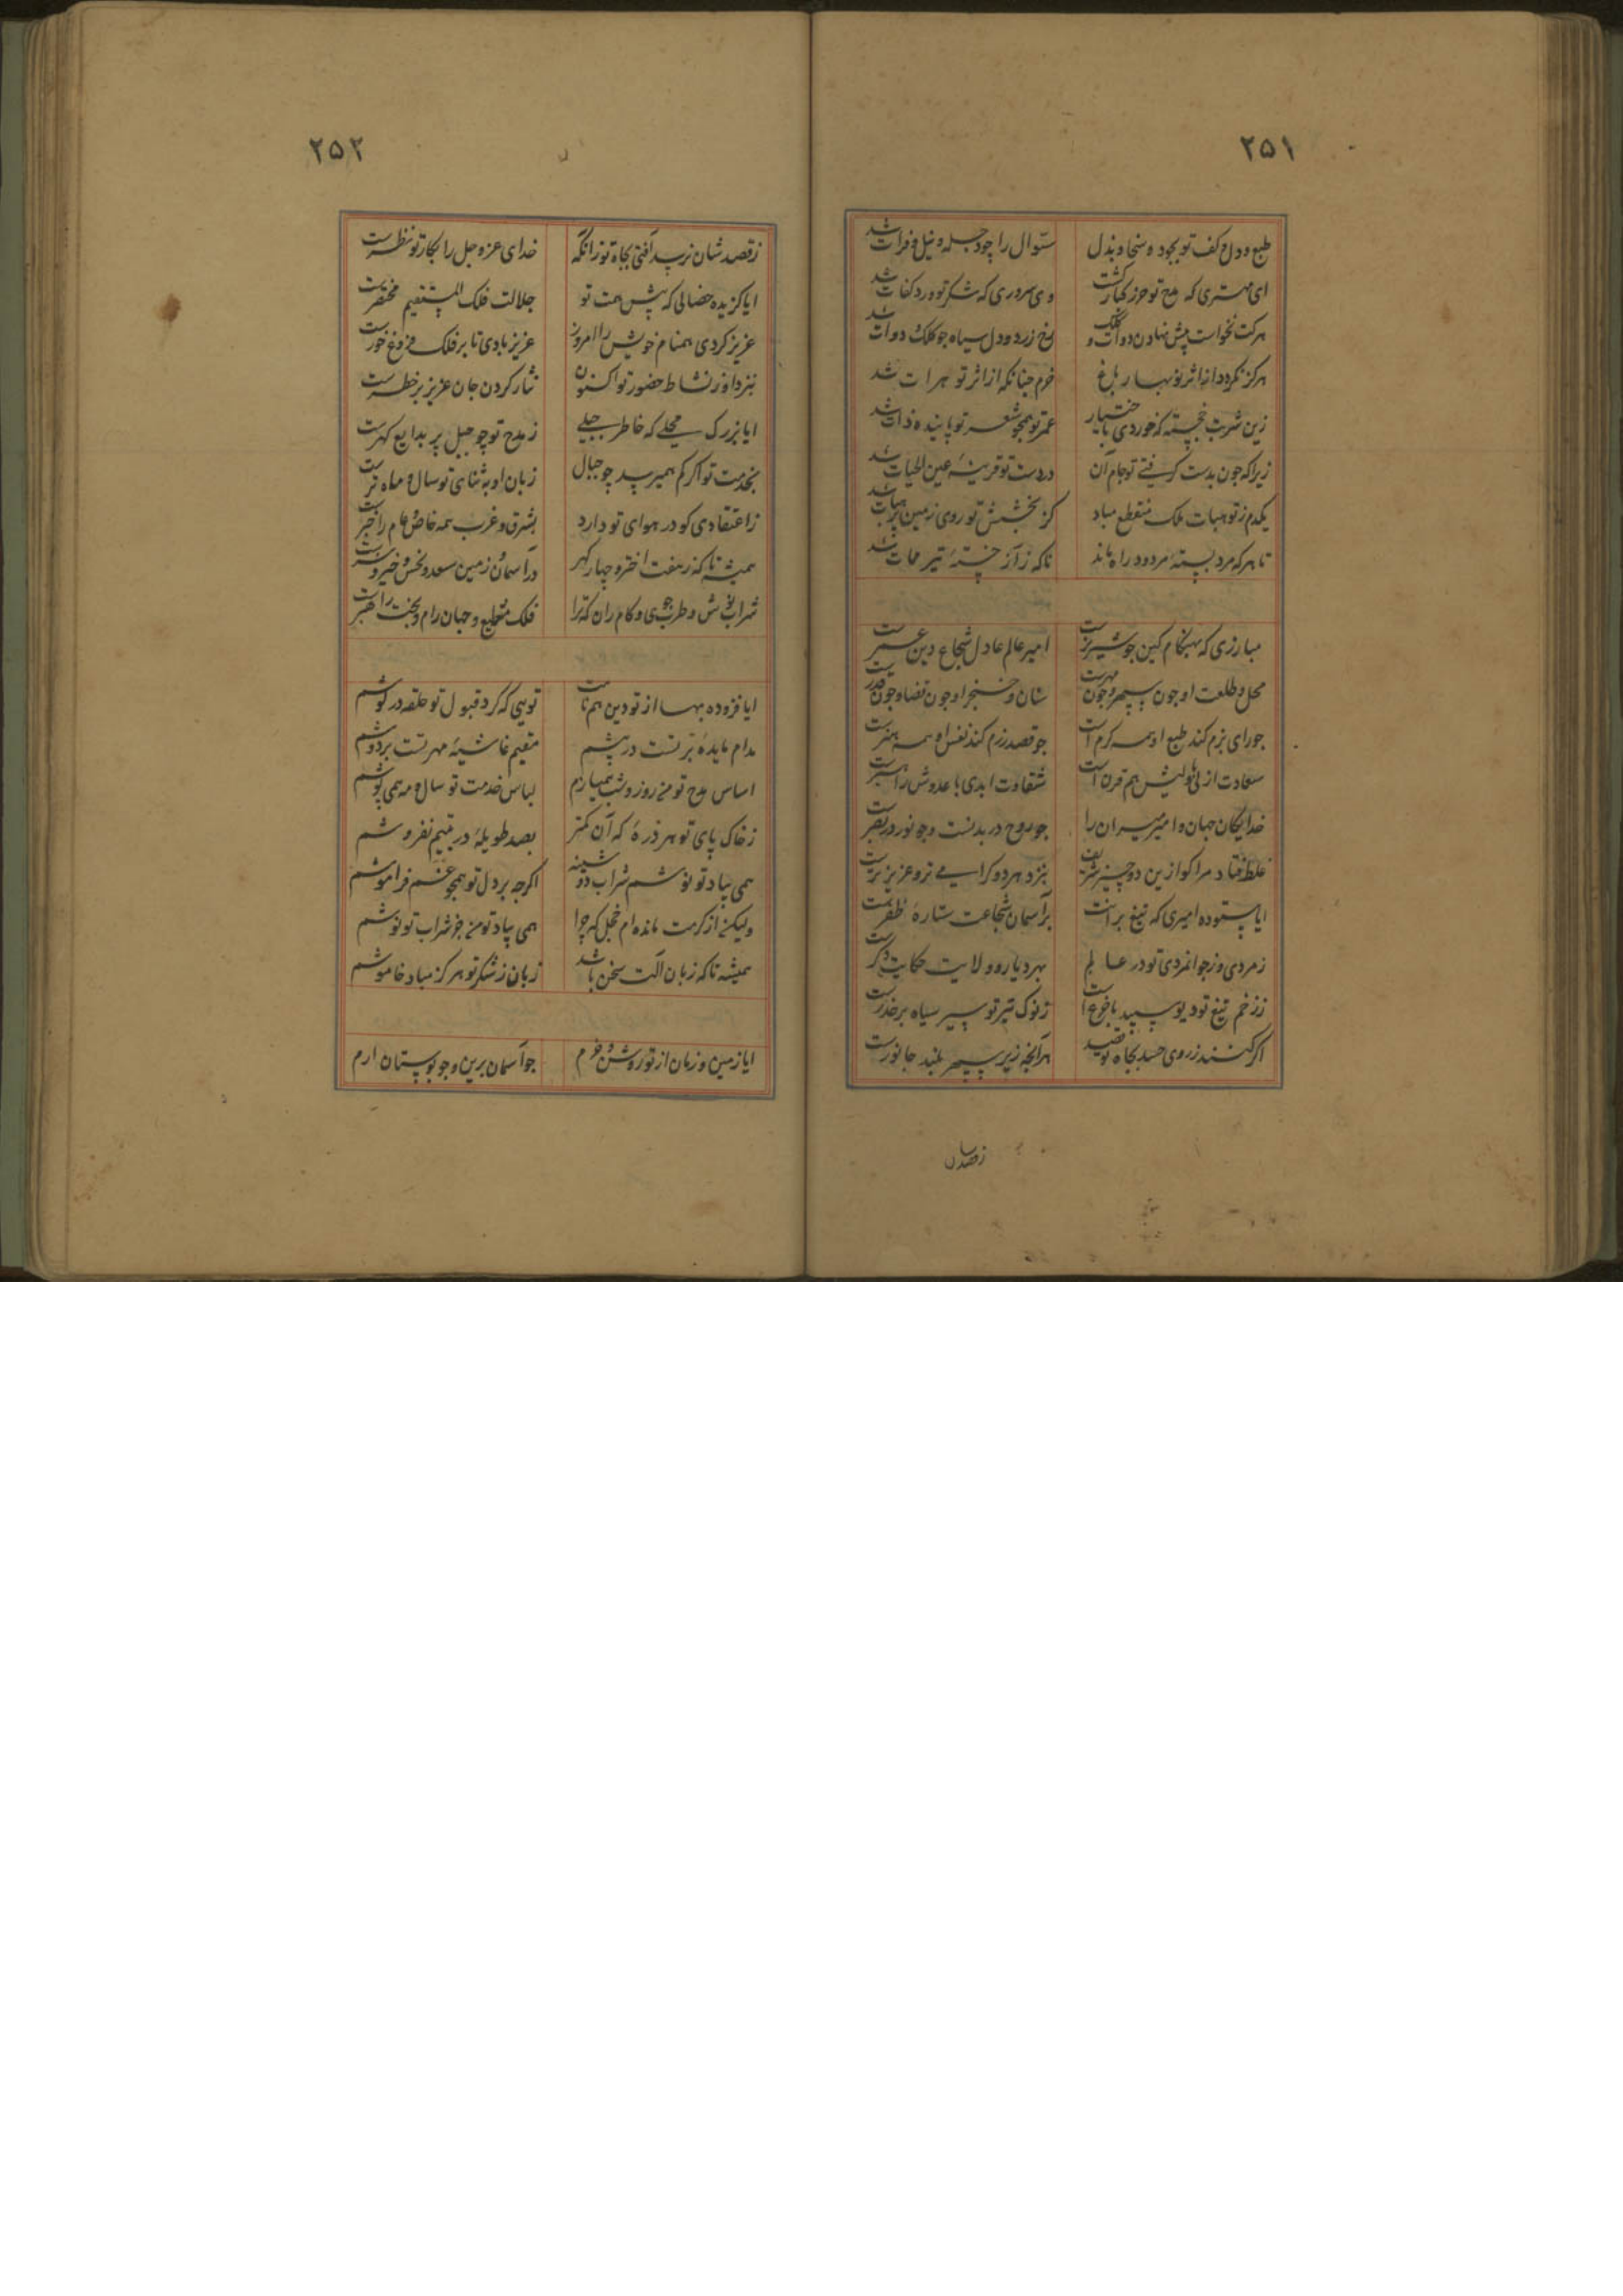 ۲۵۱
طبع و دل و کف تو بجود و سخا و بذل سؤال را چو دجله و نیل و فرات شد
ای مهتری که مدح تو حرز کبار گشت وی سروری که شکر تو ورد کفات شد
هرکت نخواست پیش نهادن دوات و کلک رخ زرد و دل سیاه چو کلک و دوات شد
هرگز نکردد از اثر نوبهار باغ خرم چنانکه از اثر تو هرات شد
زین شربت خجسته که خوردی باختیار عمر تو همچو شعر تو پاینده ذات شد
زیرا که چون بدست گرفتی تو جام آن در دست تو قرینهٔ عین الحیات شد
یکدم ز تو هبات ملک منقطع مباد کز بخشش تو روی زمین پر هبات شد
تا هر که مرد بسته مردود راه ماند تا که ز آز خستهٔ تیر مات شد
مبارزی که بهنگام کین چو شیر نرست امیر عالم عادل شجاع دین عمرست
محل و طلعت او چون سپهر و چون مهرست سنان و خنجر او چون قضا و چون قدرست
چو رای بزم کند طبع او همه کرم است چو قصد رزم کند نفس او همه هنرست
سعادت ازلی با ولیش هم قرن است شقاوت ابدی با عدوش راهبرست
خدایکان جهان و امیر میران را چو روح در بدنست و چو نور در بصرست
غلط فتاد مرا کو ازین دو چیز شریف بنزد هر دو گرامی تر و عزیزترست
ایا ستوده امیری که تیغ برانت بر آسمان شجاعت ستارهٔ ظفرست
ز مردی و ز جوانمردی تو در عالم بهر دیار و ولایت حکایت دکرست
ز زخم تیغ تو دیو سپید با فزع است ز نوک تیر تو سیر سیاه بر حذرست
اگر کنند ز روی حسد بجاه تو قصد هر آنچه زیر سپهر بلند جانورست
ز قصدشان
۲۵۲
ز قصدشان نرسد آفتی بجاه تو زانکه خدای عز و جل را بکار تو نظرست
ایا گزیده خصالی که پیش همت تو جلالت فلک المستقیم مختصرست
عزیز کردی همنام خویش را امروز عزیز بادی تا بر فلک فروغ خورست
بنزد او ز نشاط حضور تو اکنون نثار کردن جان عزیز بر خطرست
ایا بزرگ محلی که خاطر جبلی ز مدح تو چو جبل پر بدایع گهرست
بخدمت تو اگر کم همیرسد چو جبال زبان او به ثنای تو سال و ماه ترست
ز اعتقادی کو در هوای تو دارد بشرق و غرب همه خاص و عام را خبرست
همیشه تا که ز هفت اختر و چهار گهر در آسمان و زمین سعد و نحس و خیر و شرست
شراب نوش و طرب جوی و کام ران که ترا فلک مطیع و جهان رام و بخت راهبرست
ایا فزوده بها از تو دین همنامت تویی که کرد قبول تو حلقه در گوشم
مدام مایدهٔ بر تست در پشم مقیم غاشیهٔ مهر تست بر دوشم
اساس مدح تو من روز و شب همیسازم لباس خدمت تو سال و مه همی پوشم
ز خاک پای تو هر ذرهٔ که آن کمتر بصد طویلهٔ در یتیم نفروشم
همی بیاد تو نوشم شراب دوشینه اگرچه بر دل تو همچو غم فراموشم
ولیکن از کرمت مانده ام خجل که چرا همی بیاد تو من جز شراب تو نوشم
همیشه تا که زبان آلت سخن باشد زبان ز شکر تو هرگز مباد خاموشم
ایا زمین و زمان از تو روشن و خرم چو آسمان برین و چو بوستان ارم